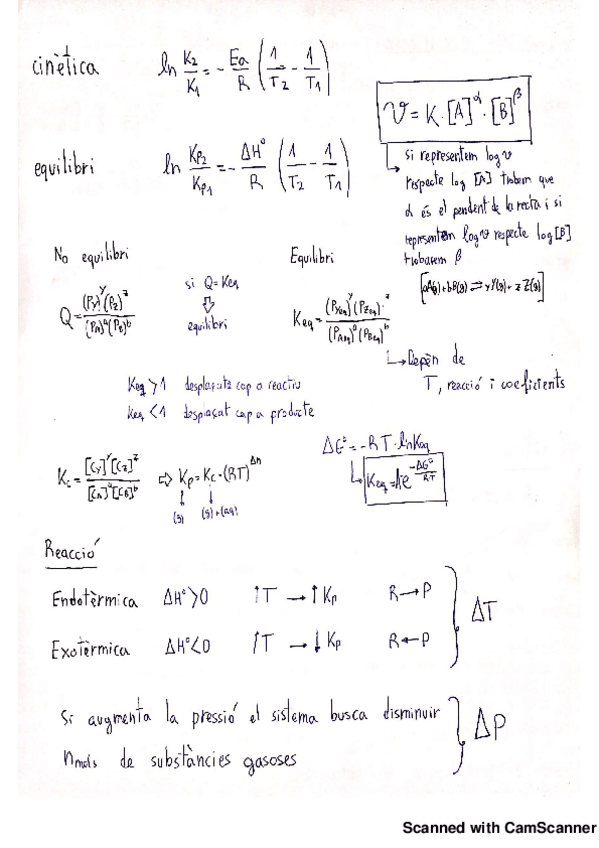 cinètica ln K₂/K₁ = - Ea/R (1/T₂ - 1/T₁)
V = K·[A]^α·[B]^β
si representem log v
respecte log [A] trobem que
α és el pendent de la recta i si
representem log v respecte log [B]
trobarem β
[aA(g)+bB(g) ⇌ yY(g)+zZ(g)]
equilibri ln Kp₂/Kp₁ = - ΔH°/R (1/T₂ - 1/T₁)
No equilibri
Q = (Py)^y (Pz)^z / (PA)^a (PB)^b
si Q=Keq
⇓
equilibri
Equilibri
Keq = (PYeq)^y (PZeq)^z / (PAeq)^a (PBeq)^b
↳ Depèn de
T, reacció i coeficients
Keq >1 desplaçats cap a reactiu
Keq <1 desplaçat cap a producte
ΔG°=-RT·lnKeq
↳ Keq = e^(-ΔG°/RT)
Kc = [Cy]^y [Cz]^z / [CA]^a [CB]^b ⇨ Kp = Kc·(RT)^Δn
↓ ↓
(g) (g)+(aq)
Reacció
Endotèrmica ΔH°>0 ↑T → ↑Kp R→P
Exotèrmica ΔH°<0 ↑T → ↓Kp R←P
} ΔT
Si augmenta la pressió el sistema busca disminuir
nmols de substàncies gasoses
} ΔP
Scanned with CamScanner